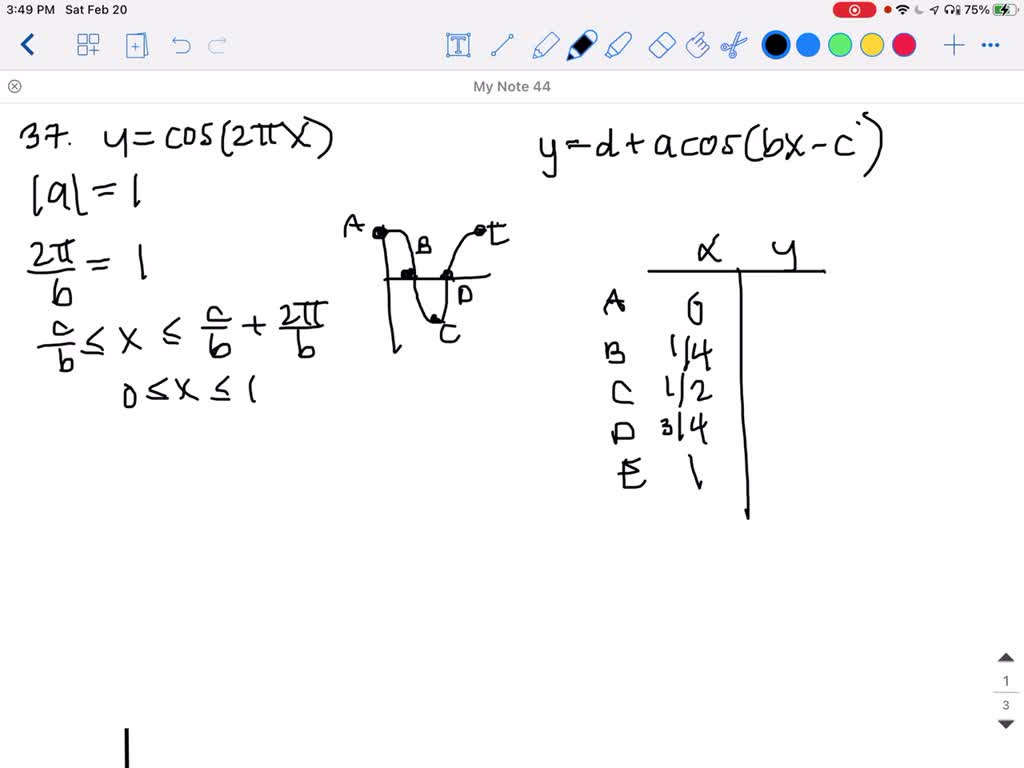 3:49 PM Sat Feb 20
75%
T
My Note 44
37. y = cos(2πx)
y = d + a cos(bx - c)
|a| = 1
2π/b = 1
c/b ≤ x ≤ c/b + 2π/b
0 ≤ x ≤ 1
A
B
C
D
E
x y
A 0
B 1/4
C 1/2
D 3/4
E 1
1
3